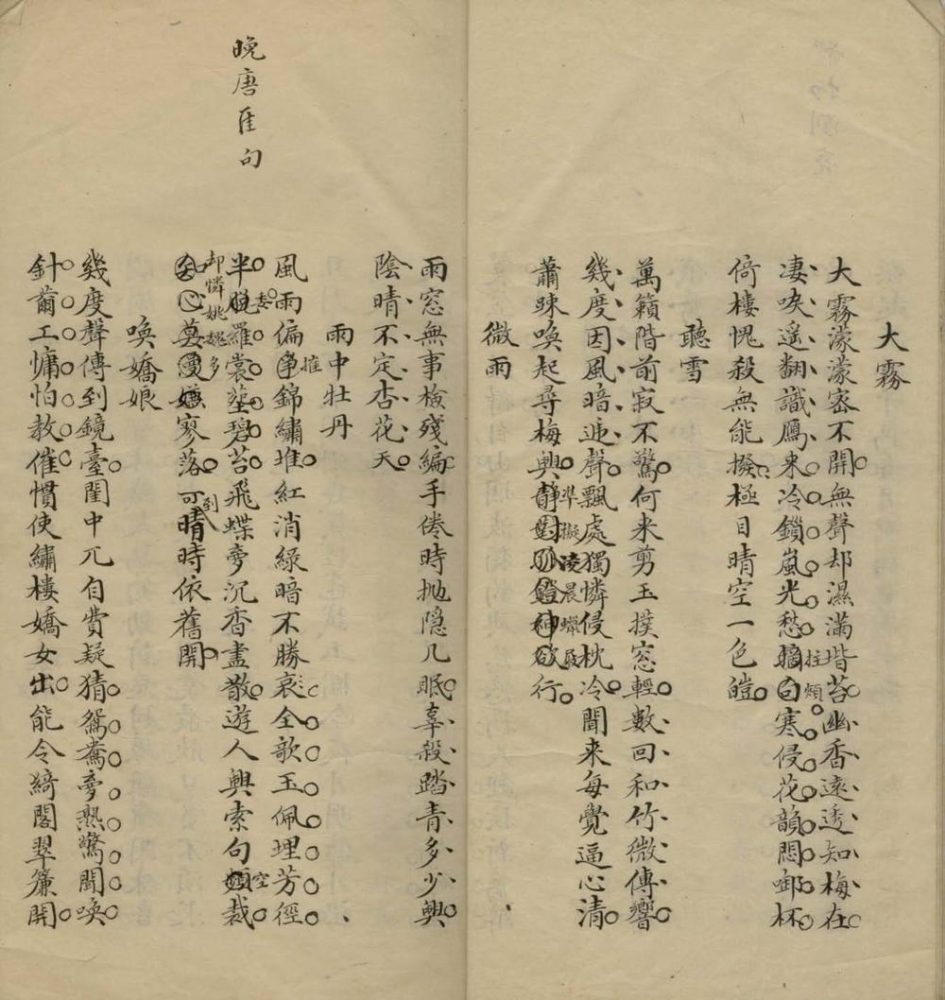 大霧
大霧濛濛密不開無聲却濕滿堦苔幽香遠透知梅在
淒唳遥翻識鴈来冷鎖嵐光愁拄頰寒侵花韻悶啣杯
倚樓愧殺無能撥極目晴空一色皚
聽雪
萬籟階前寂不驚何来剪玉撲窓輕數回和竹微傳響
幾度因風暗迊聲飄處獨憐侵枕冷聞来每覺逼心清
蕭踈喚起尋梅興静對
準擬凌晨蠟屐
行
微雨
雨窓無事檢殘編手倦時抛隐几眠辜殺踏青多少興
陰晴不定杏花天
晚唐佳句
雨中牡丹
風雨偏
摧
錦繡堆紅消綠暗不勝哀仝歌玉佩埋芳徑
半脱羅裳
委
碧苔飛蝶夢沉香盡散遊人興索句
空
裁
却憐姚魏多
寥落可
到
晴時依舊開
喚嬌娘
幾度聲傳到鏡臺閨中兀自費疑猜鴛鴦夢熟驚聞喚
針黹工慵怕教催慣使繡樓嬌女出能令綺閣翠簾開